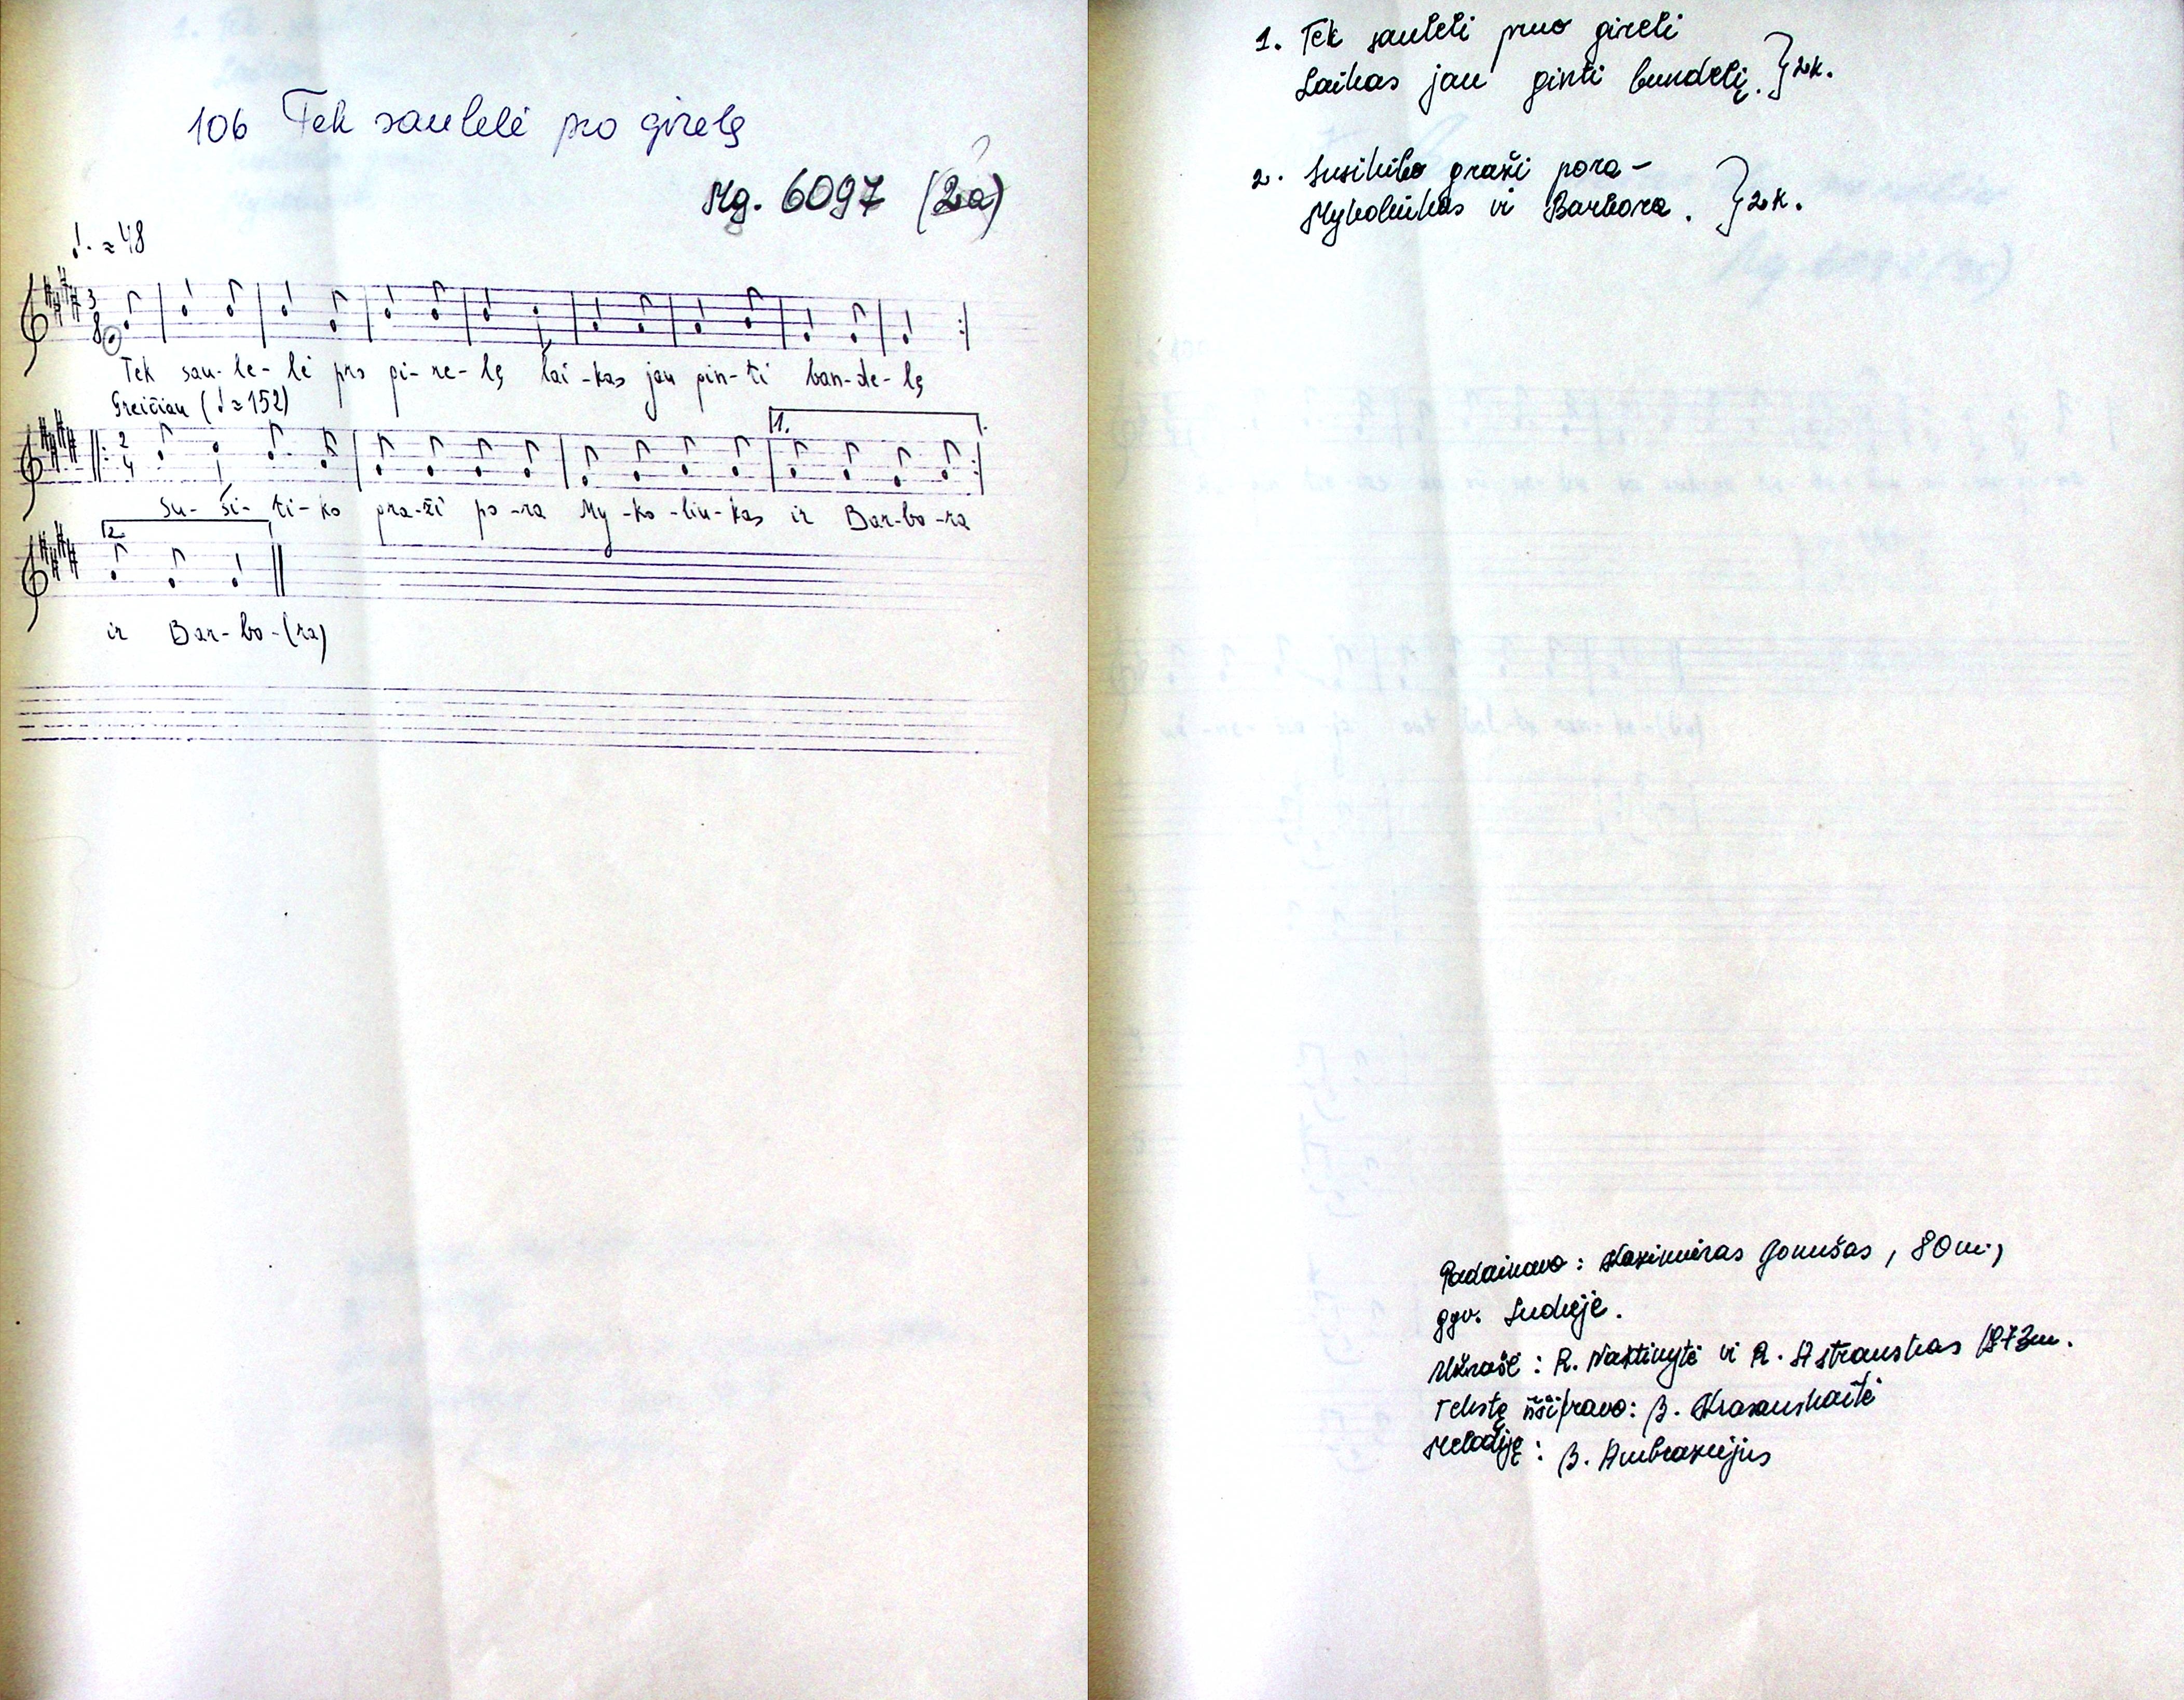 106 Tek saulelė pro girelę
Mg. 6097 (2a)
?
♩. ≈ 48
3 8
Tek sau- le- lė pro gi- re- lę lai -kas jau gin- ti ban- de- lę
Greičiau (♩ ≈ 152)
2 4
1.
Su- si- ti- ko gra- ži po -ra My -ko -liu- kas ir Bar- bo -ra
2.
ir Bar- bo -(ra)
1. Tek saulelì pruo girelì
Laikas jau ginti bundelį. } 2k.
2. Susitiko graži pora –
Mykoliukas ir Barbora. } 2k.
Padainavo: Kazimieras Jonušas, 80 m.,
gyv.
Užrašė: R. Naktinytė ir R. Astrauskas 1973 m.
Tekstą iššifravo: B. Krasauskaitė
Melodiją: B. Ambraziejus